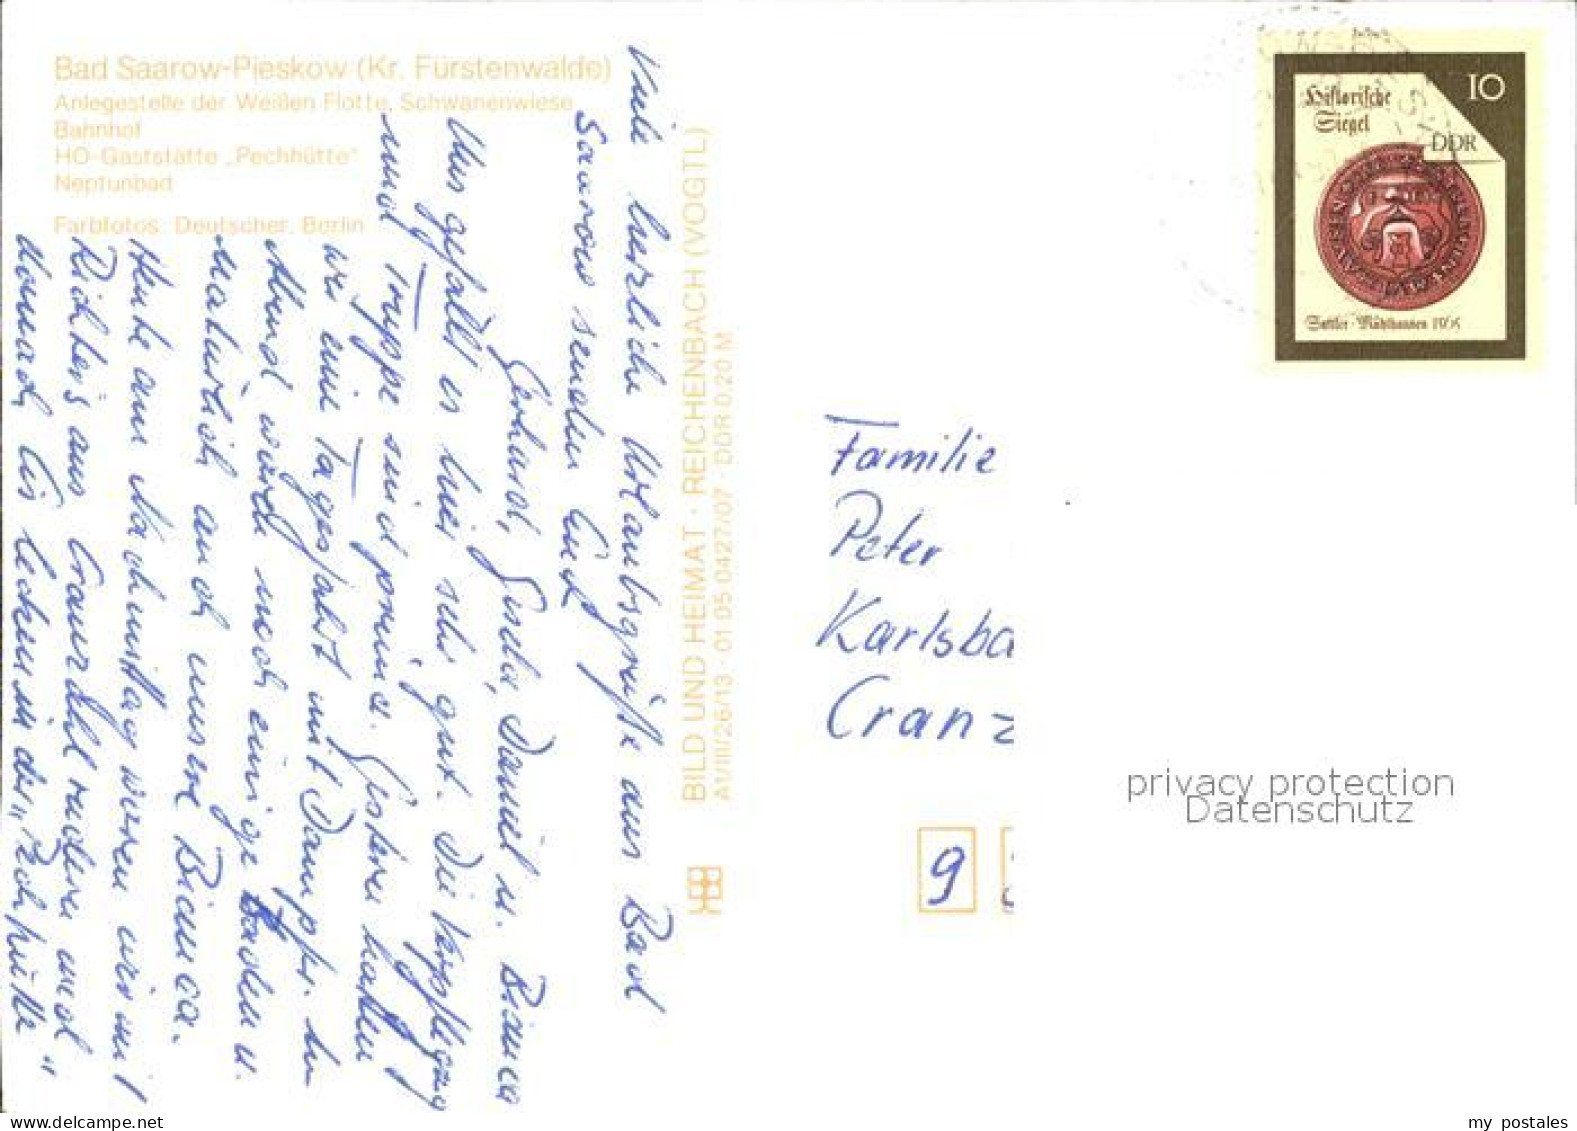 Bad Saarow-Pieskow (Kr. Fürstenwalde)
Anlegestelle der Weißen Flotte, Schwanenwiese
Bahnhof
HO-Gaststätte „Pechhütte"
Neptunbad
Farbfotos: Deutscher, Berlin
Viele herzliche Urlaubsgrüße aus Bad
Saarow senden Euch
Gerhard, Gisela, Daniel u. Bianca
Uns gefällt es hier sehr gut. Die Verpflegung
und Truppe sind prima. Gestern hatten
wir eine Tagesfahrt mit Dampfer. Am
Abend wurde noch einige Baden u.
Natürlich auch unsere Bianca.
Heute am Nachmittag waren wir mit
Richter's aus Cranzahl rudern und
danach bis in der „Pechhütte"
BILD UND HEIMAT · REICHENBACH (VOGTL)
A1/III/26/13 · 01 05 0427/07 · DDR 0,20 M
10
Historische
Siegel
DDR
Sattler · Mühlhausen 1565
Familie
Peter
Karlsba
Cranz
9
privacy protection
Datenschutz
my postales